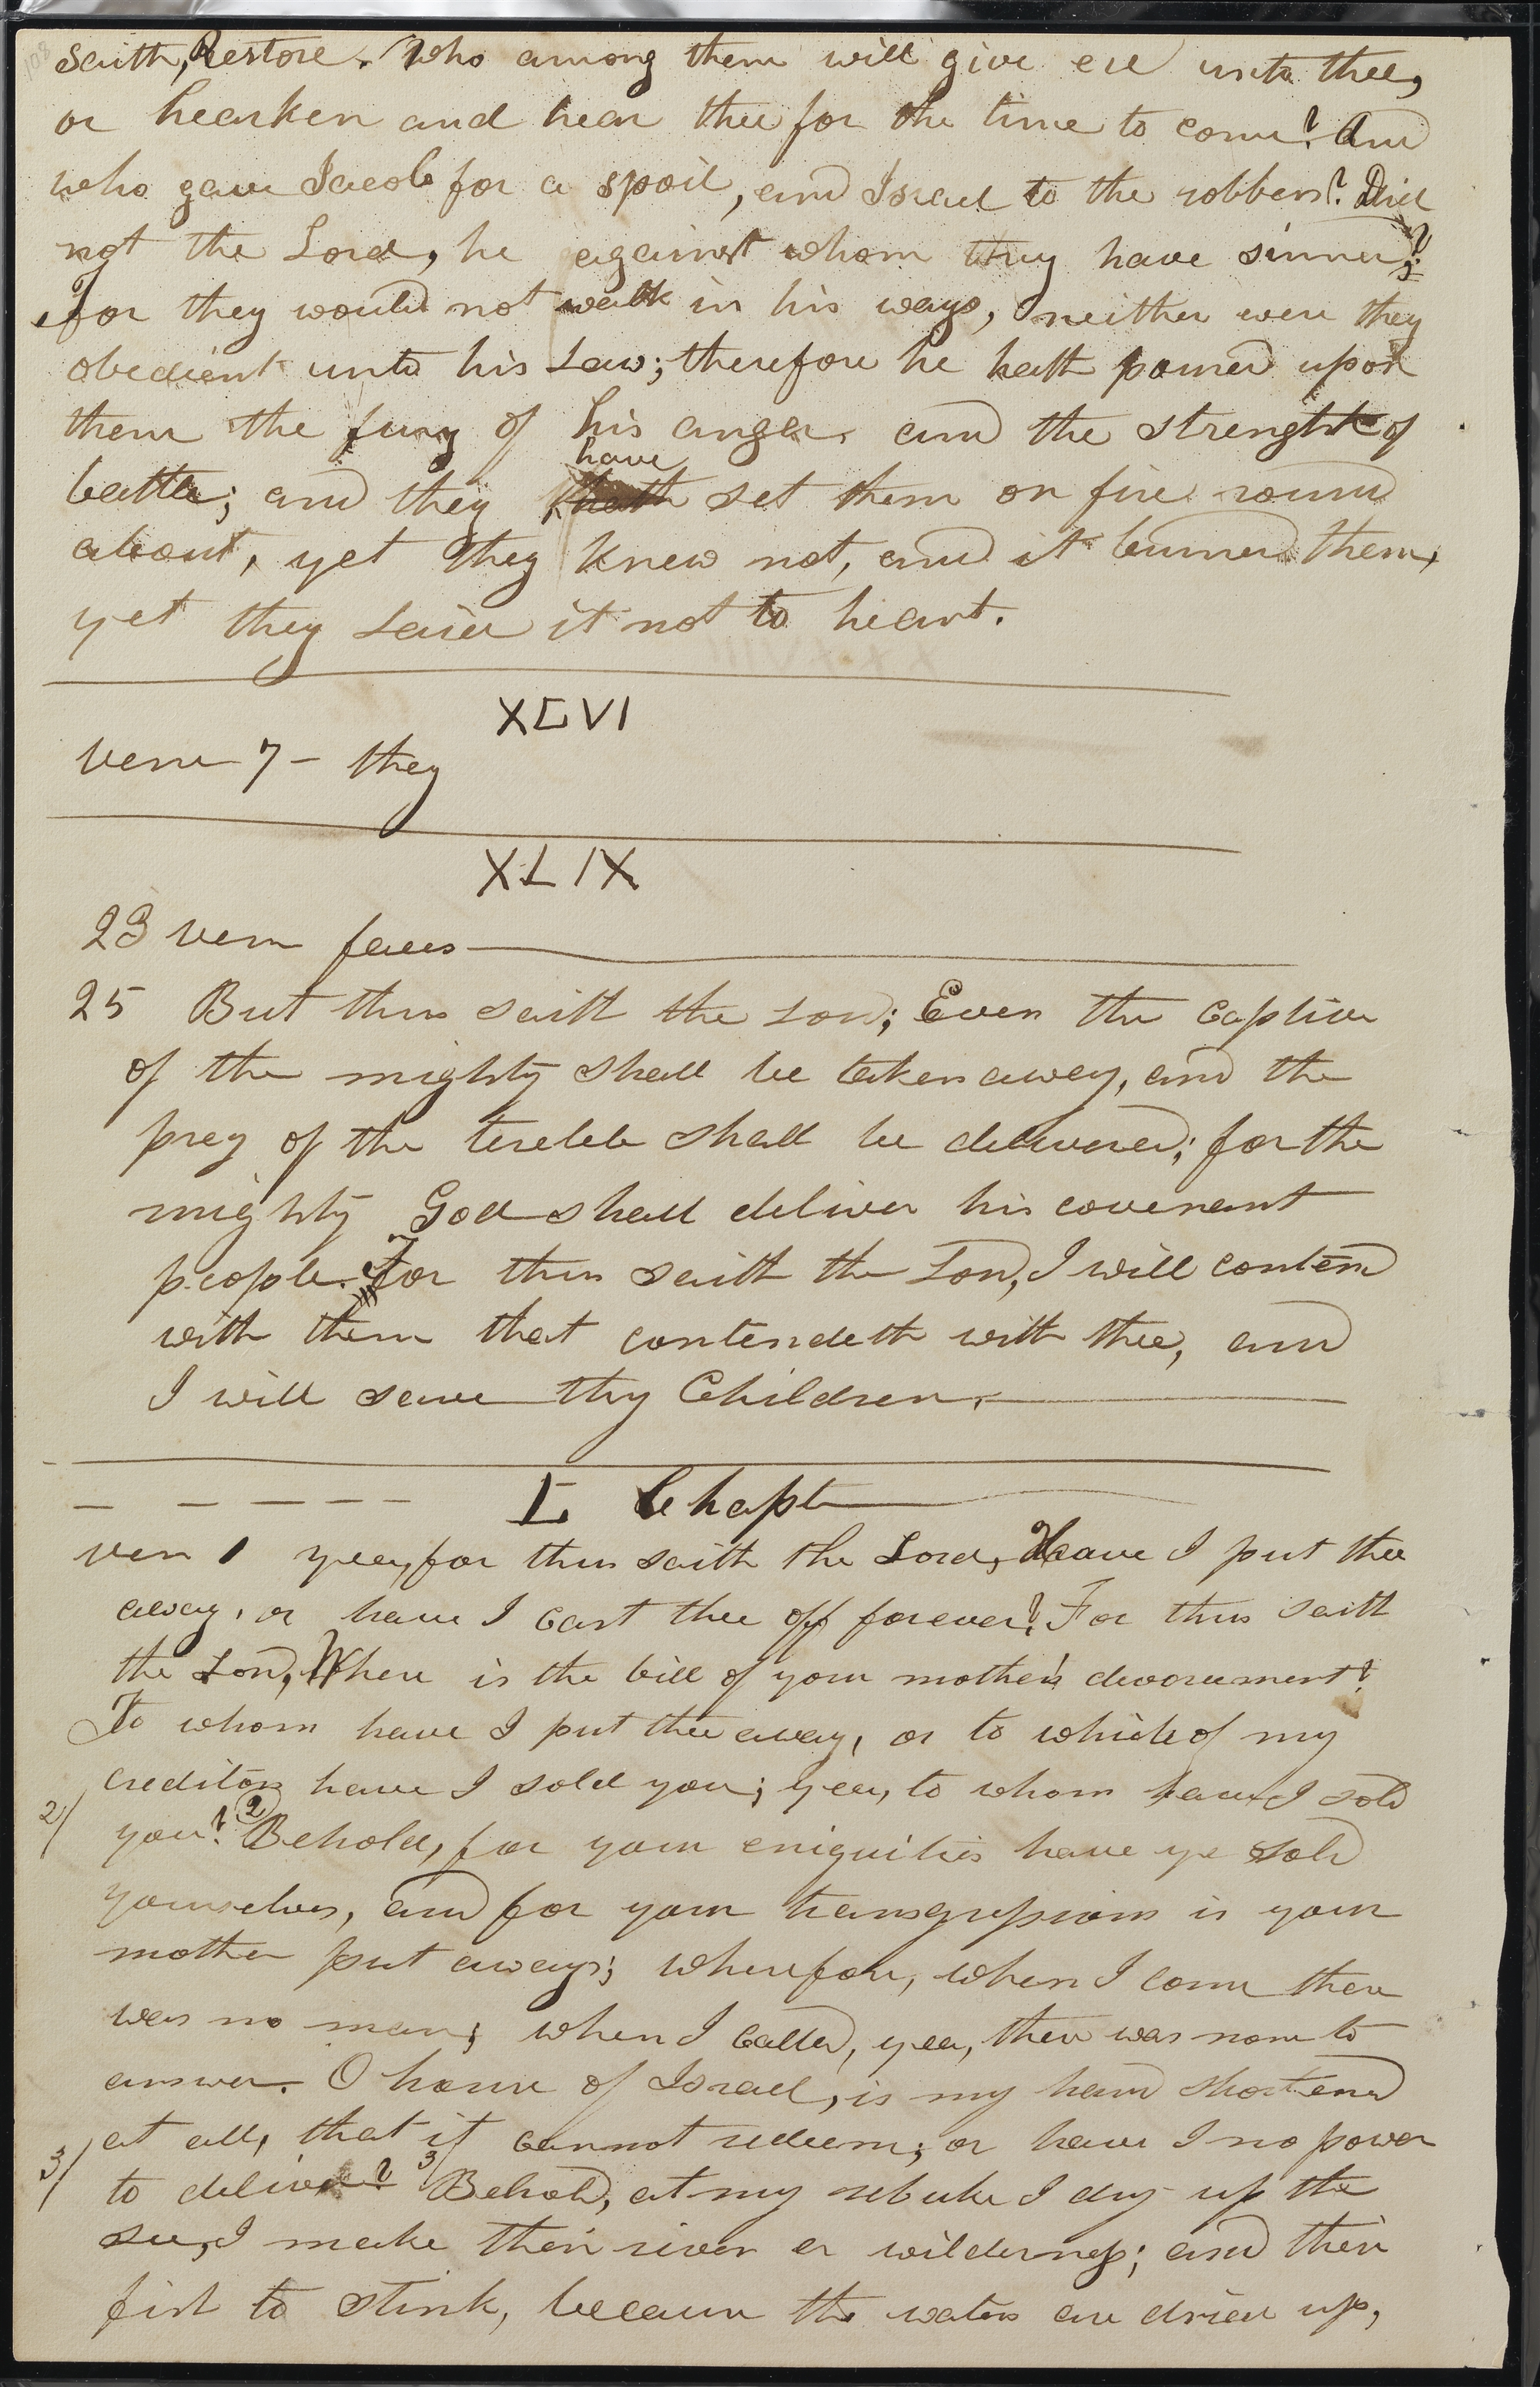 saith, Restore. Who among them will give ere unto thee,
or hearken and hear thee for the time to come? And
who gave Jacob for a spoil, and Israel to the robbers? Did
not the Lord, he against whom they have sinned?
For they would not walk in his ways, neither were they
obedient unto his Law; therefore he hath poured upon
them the fury of his anger and the strenght of
have
battle; and they hath set them on fire round
about, yet they knew not, and it burned them,
yet they laied it not to heart.
XLVI
verse 7 - they
XLIX
23 verse faces
25 But thus saith the Lord; Even the captive
of the mighty shall be taken away, and the
prey of the tereble shall be delivered; for the
mighty God shall deliver his covenant
people. For thus saith the Lord, I will contend
with them that contendeth with thee, and
I will save thy Children.
L Chapt
vers 1 yea, for thus saith the Lord, Have I put thee
away, or have I cast thee off forever? For thus saith
the Lord, Where is the bill of your mother's devorcement?
To whom have I put thee away, or to which of my
creditors have I sold you; yea, to whom have I sold
2/ you? 2 Behold, for your eniquities have ye sold
yourselves, and for your transgressions is your
mother put away; wherefore, when I come there
was no man; when I called, yea, there was none to
answer. O house of Israel, is my hand shortened
at all, that it cannot redeem; or have I no power
3/ to deliver? 3/ Behold, at my rebuke I dry up the
sea, I make their rivers a wilderness; and their
fish to stink, because the waters are dried up,